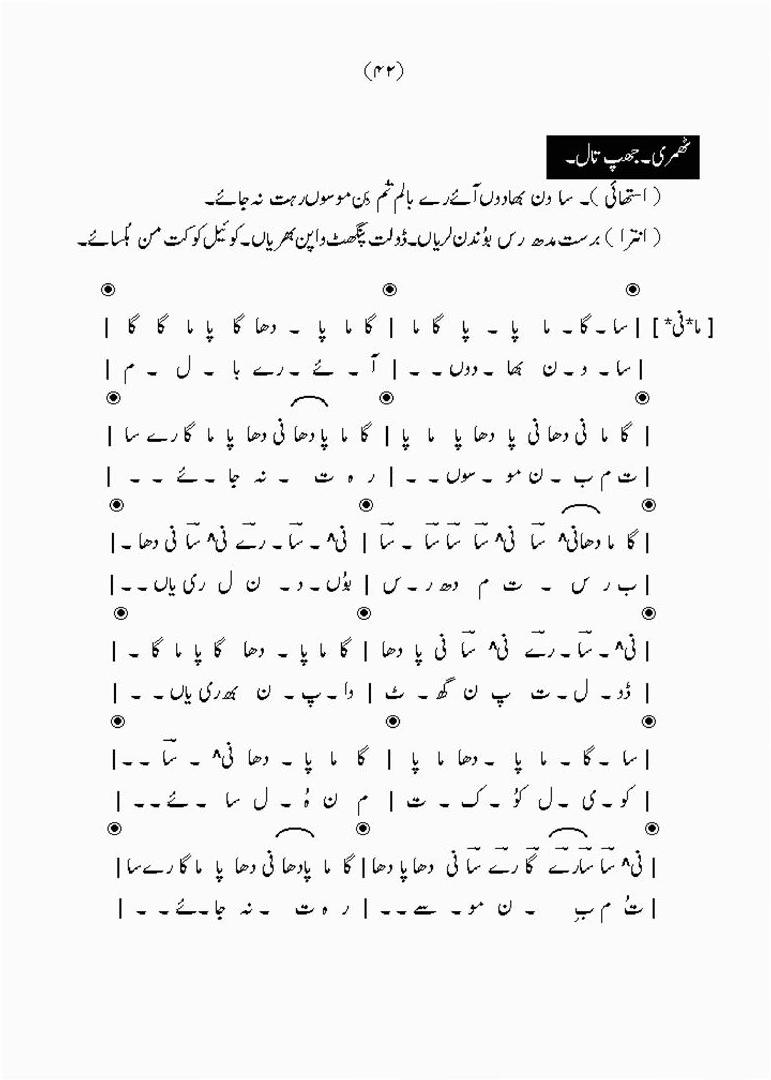 (۴۲)
ٹھمری۔ جھپ تال۔
(استھائی)۔ ساون بھادوں آئے رے بالم تُم بِن موسوں رہت نہ جائے۔
(انترا) برست مدھ رس بوُندن لریاں۔ ڈولت پنگھٹ واپن بھریاں۔ کوئیل کوکت من ہُلسائے۔
[ما*نی*] | سا ۔ گا ۔ ما پا ۔ پا گا ما | گا ما پا ۔ دھا گا پا ما گا گا |
| سا ۔ و ۔ ن بھا ۔ دوں ۔ ۔ | آ ۔ ئے ۔ رے با ۔ ل ۔ م |
| گا ما نی دھا نی پا دھا پا ما پا | گا ما پا دھا نی دھا پا ما گا رے سا |
| ت م ب ۔ ن مو ۔ سوں ۔ ۔ | ر ہ ت ۔ نہ جا ۔ ئے ۔ ۔ |
| گا ما دھا نی^ سآ نی^ سآ سآ سآ ۔ سآ | نی^ ۔ سآ ۔ رےٓ نی^ سآ نی دھا ۔ |
| ب ر س ۔ ت م دھ ر ۔ س | بوُں ۔ د ۔ ن ل ری یاں ۔ ۔ |
| نی^ ۔ سآ ۔ رےٓ نی^ سآ نی پا دھا | گا ما پا ۔ دھا گا پا ما گا ۔ |
| ڈو ۔ ل ۔ ت پ ن گھ ۔ ٹ | وا ۔ پ ۔ ن بھ ری یاں ۔ ۔ |
| سا ۔ گا ۔ ما پا ۔ دھا ما پا | گا ما پا ۔ دھا نی^ ۔ سآ ۔ ۔ |
| کو ۔ ی ۔ ل کوُ ۔ ک ۔ ت | م ن ہُ ۔ ل سا ۔ ئے ۔ ۔ |
| نی^ سآ سآ رےٓ گآ رےٓ سآ نی دھا پا دھا | گا ما پا دھا نی دھا پا ما گا رے سا |
| تُ م بِ ۔ ن مو ۔ سے ۔ ۔ | ر ہ ت ۔ نہ جا ۔ ئے ۔ ۔ |